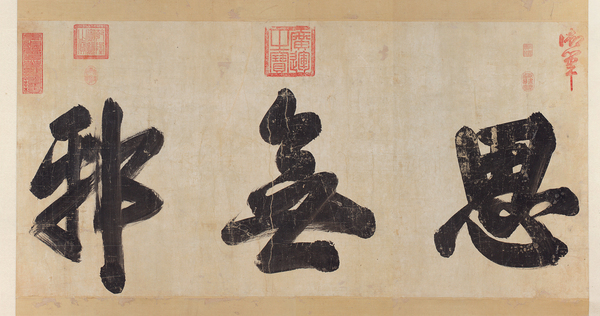 御筆
思無邪
廣運之寶